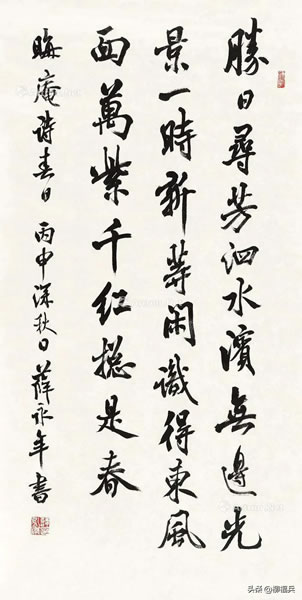 勝日尋芳泗水濱無邊光
景一時新等閑識得東風
面萬紫千红摠是春
晦庵詩春日 丙申深秋日 薛永年書
头条 @柳振兵